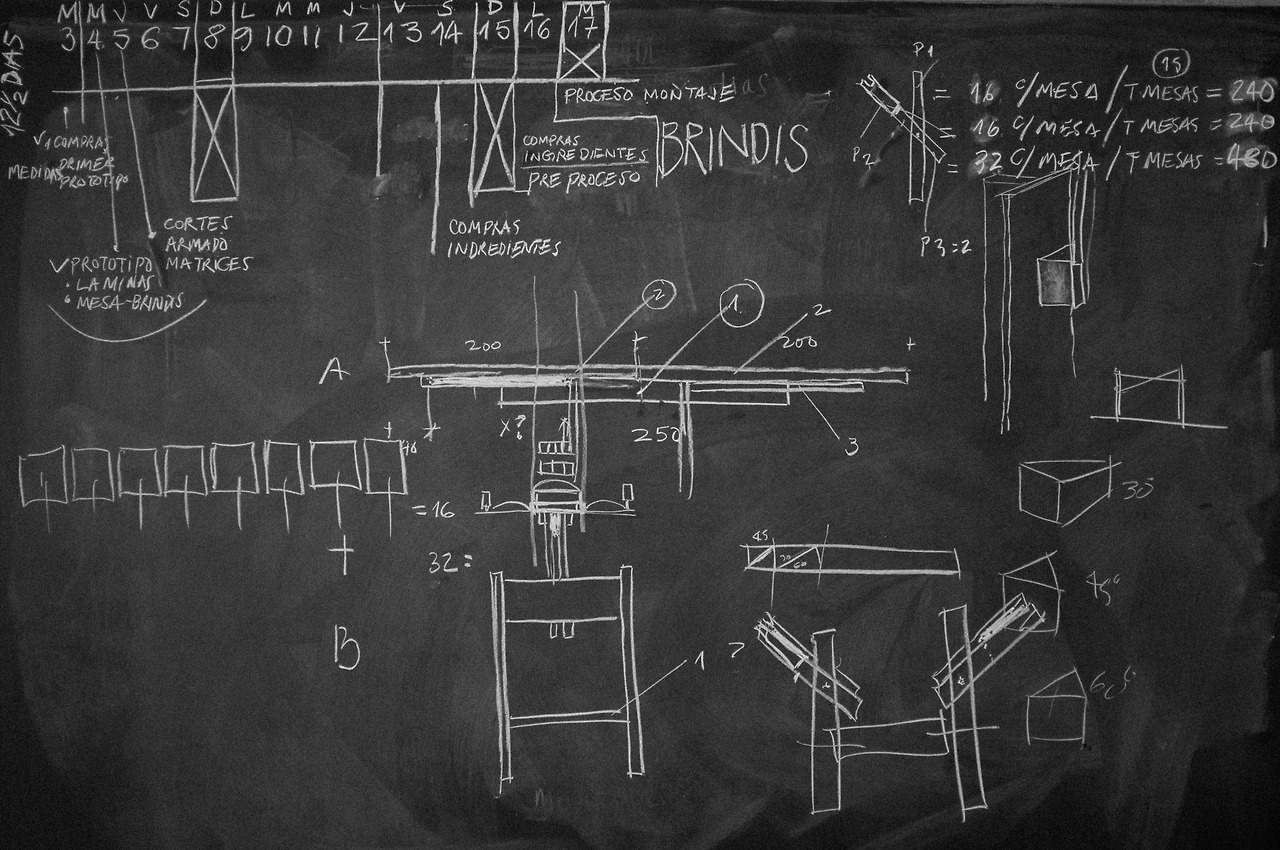 M M J V S D L M M J V S D L M
3 4 5 6 7 8 9 10 11 12 13 14 15 16 17
12½ DIAS
PROCESO MONTAJE
BRINDIS
COMPRAS
INGREDIENTES
PRE PROCESO
COMPRAS
INDREDIENTES
√1 COMPRAS
MEDIDAS PRIMER
PROTOTIPO
CORTES
ARMADO
MATRICES
√ PROTOTIPO
· LAMINAS
· MESA-BRINDIS
P1
P2
P3=2
15
= 16 C/MESA / T MESAS = 240
= 16 C/MESA / T MESAS = 240
= 32 C/MESA / T MESAS = 480
2 1 2
200 200
A
X? 250 3
40
= 16
32 =
+
B
1 ?
45 30 60
30
45°
60°